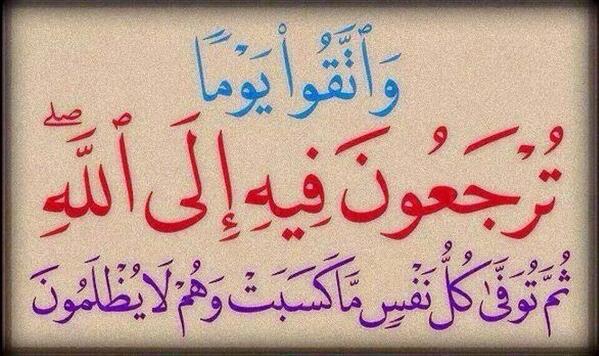 وَٱتَّقُوا۟ يَوْمًا
تُرْجَعُونَ فِيهِ إِلَى ٱللَّهِ ۖ
ثُمَّ تُوَفَّىٰ كُلُّ نَفْسٍ مَّا كَسَبَتْ وَهُمْ لَا يُظْلَمُونَ